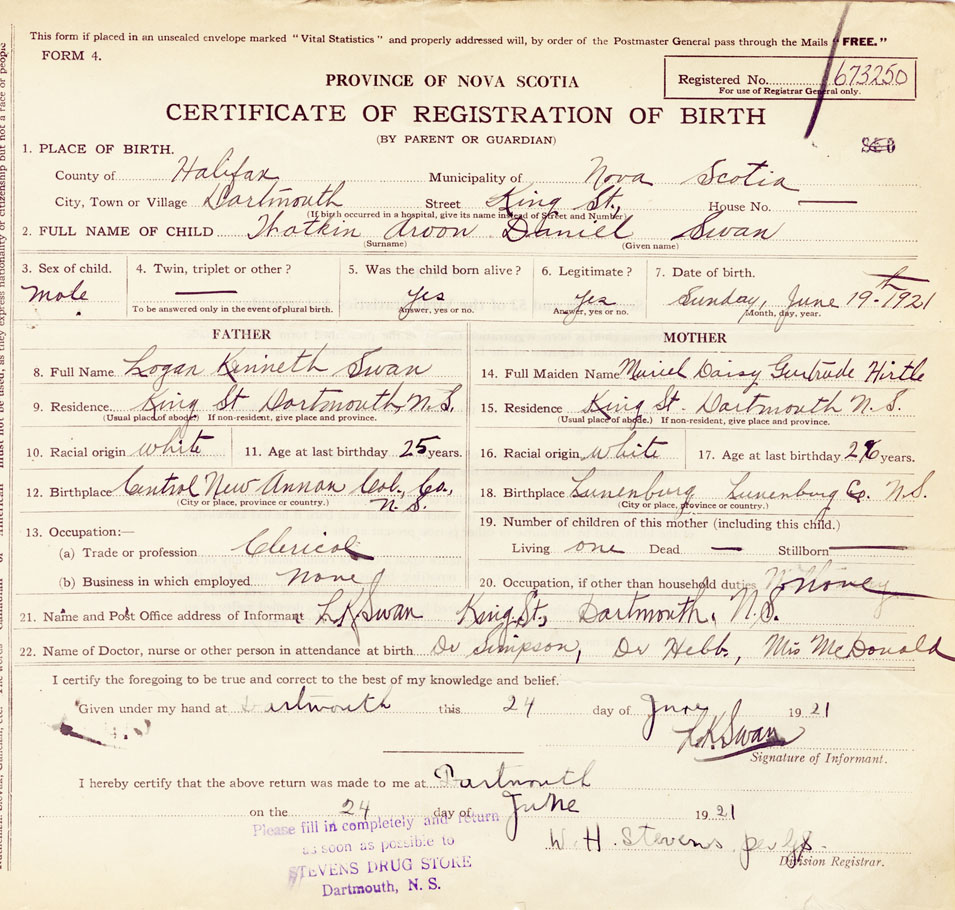 This form if placed in an unsealed envelope marked "Vital Statistics" and properly addressed will, by order of the Postmaster General pass through the Mails "FREE."
FORM 4.
PROVINCE OF NOVA SCOTIA
Registered No. 673250
For use of Registrar General only.
CERTIFICATE OF REGISTRATION OF BIRTH
(BY PARENT OR GUARDIAN)
1. PLACE OF BIRTH.
County of Halifax Municipality of Nova Scotia
City, Town or Village Dartmouth Street King St., House No. —
(If birth occurred in a hospital, give its name instead of Street and Number)
2. FULL NAME OF CHILD Daniel Swan
(Surname) (Given name)
3. Sex of child. 4. Twin, triplet or other? 5. Was the child born alive? 6. Legitimate? 7. Date of birth.
Male — Yes Yes Sunday, June 19th 1921
To be answered only in the event of plural birth. Answer, yes or no. Answer, yes or no. Month, day, year.
FATHER MOTHER
8. Full Name Logan Kenneth Swan 14. Full Maiden Name Muriel Daisy Gertrude Hirtle
9. Residence King St Dartmouth, N.S. 15. Residence King St. Dartmouth N.S.
(Usual place of abode) If non-resident, give place and province. (Usual place of abode.) If non-resident, give place and province.
10. Racial origin white 11. Age at last birthday 25 years. 16. Racial origin white 17. Age at last birthday 26 years.
12. Birthplace Central New Annan Col., Co., N.S. 18. Birthplace Lunenburg Lunenburg Co. N.S.
(City or place, province or country.) (City or place, province or country.)
13. Occupation:— 19. Number of children of this mother (including this child.)
(a) Trade or profession Clerical Living one Dead — Stillborn —
(b) Business in which employed none 20. Occupation, if other than household duties none
21. Name and Post Office address of Informant L K Swan King St., Dartmouth, N.S.
22. Name of Doctor, nurse or other person in attendance at birth Dr Simpson, Dr Hebb, Mis McDonald
I certify the foregoing to be true and correct to the best of my knowledge and belief.
Given under my hand at Dartmouth this 24 day of June 1921
L.K. Swan
Signature of Informant.
I hereby certify that the above return was made to me at Dartmouth
on the 24 day of June 1921
Please fill in completely and return
as soon as possible to
STEVENS DRUG STORE
Dartmouth, N. S.
W. H. Stevens per
Division Registrar.